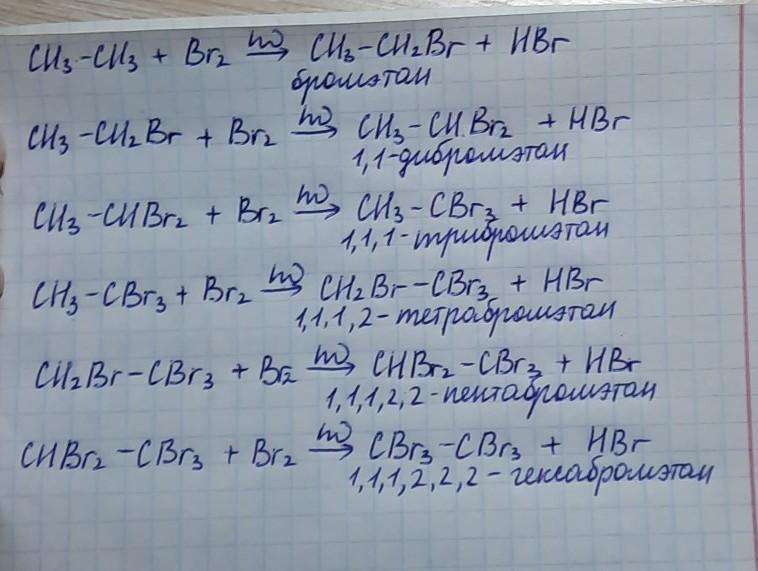 CH₃-CH₃ + Br₂ hν→ CH₃-CH₂Br + HBr
бромэтан
CH₃-CH₂Br + Br₂ hν→ CH₃-CHBr₂ + HBr
1,1-дибромэтан
CH₃-CHBr₂ + Br₂ hν→ CH₃-CBr₃ + HBr
1,1,1-трибромэтан
CH₃-CBr₃ + Br₂ hν→ CH₂Br-CBr₃ + HBr
1,1,1,2-тетрабромэтан
CH₂Br-CBr₃ + Br₂ hν→ CHBr₂-CBr₃ + HBr
1,1,1,2,2-пентабромэтан
CHBr₂-CBr₃ + Br₂ hν→ CBr₃-CBr₃ + HBr
1,1,1,2,2,2-гексабромэтан